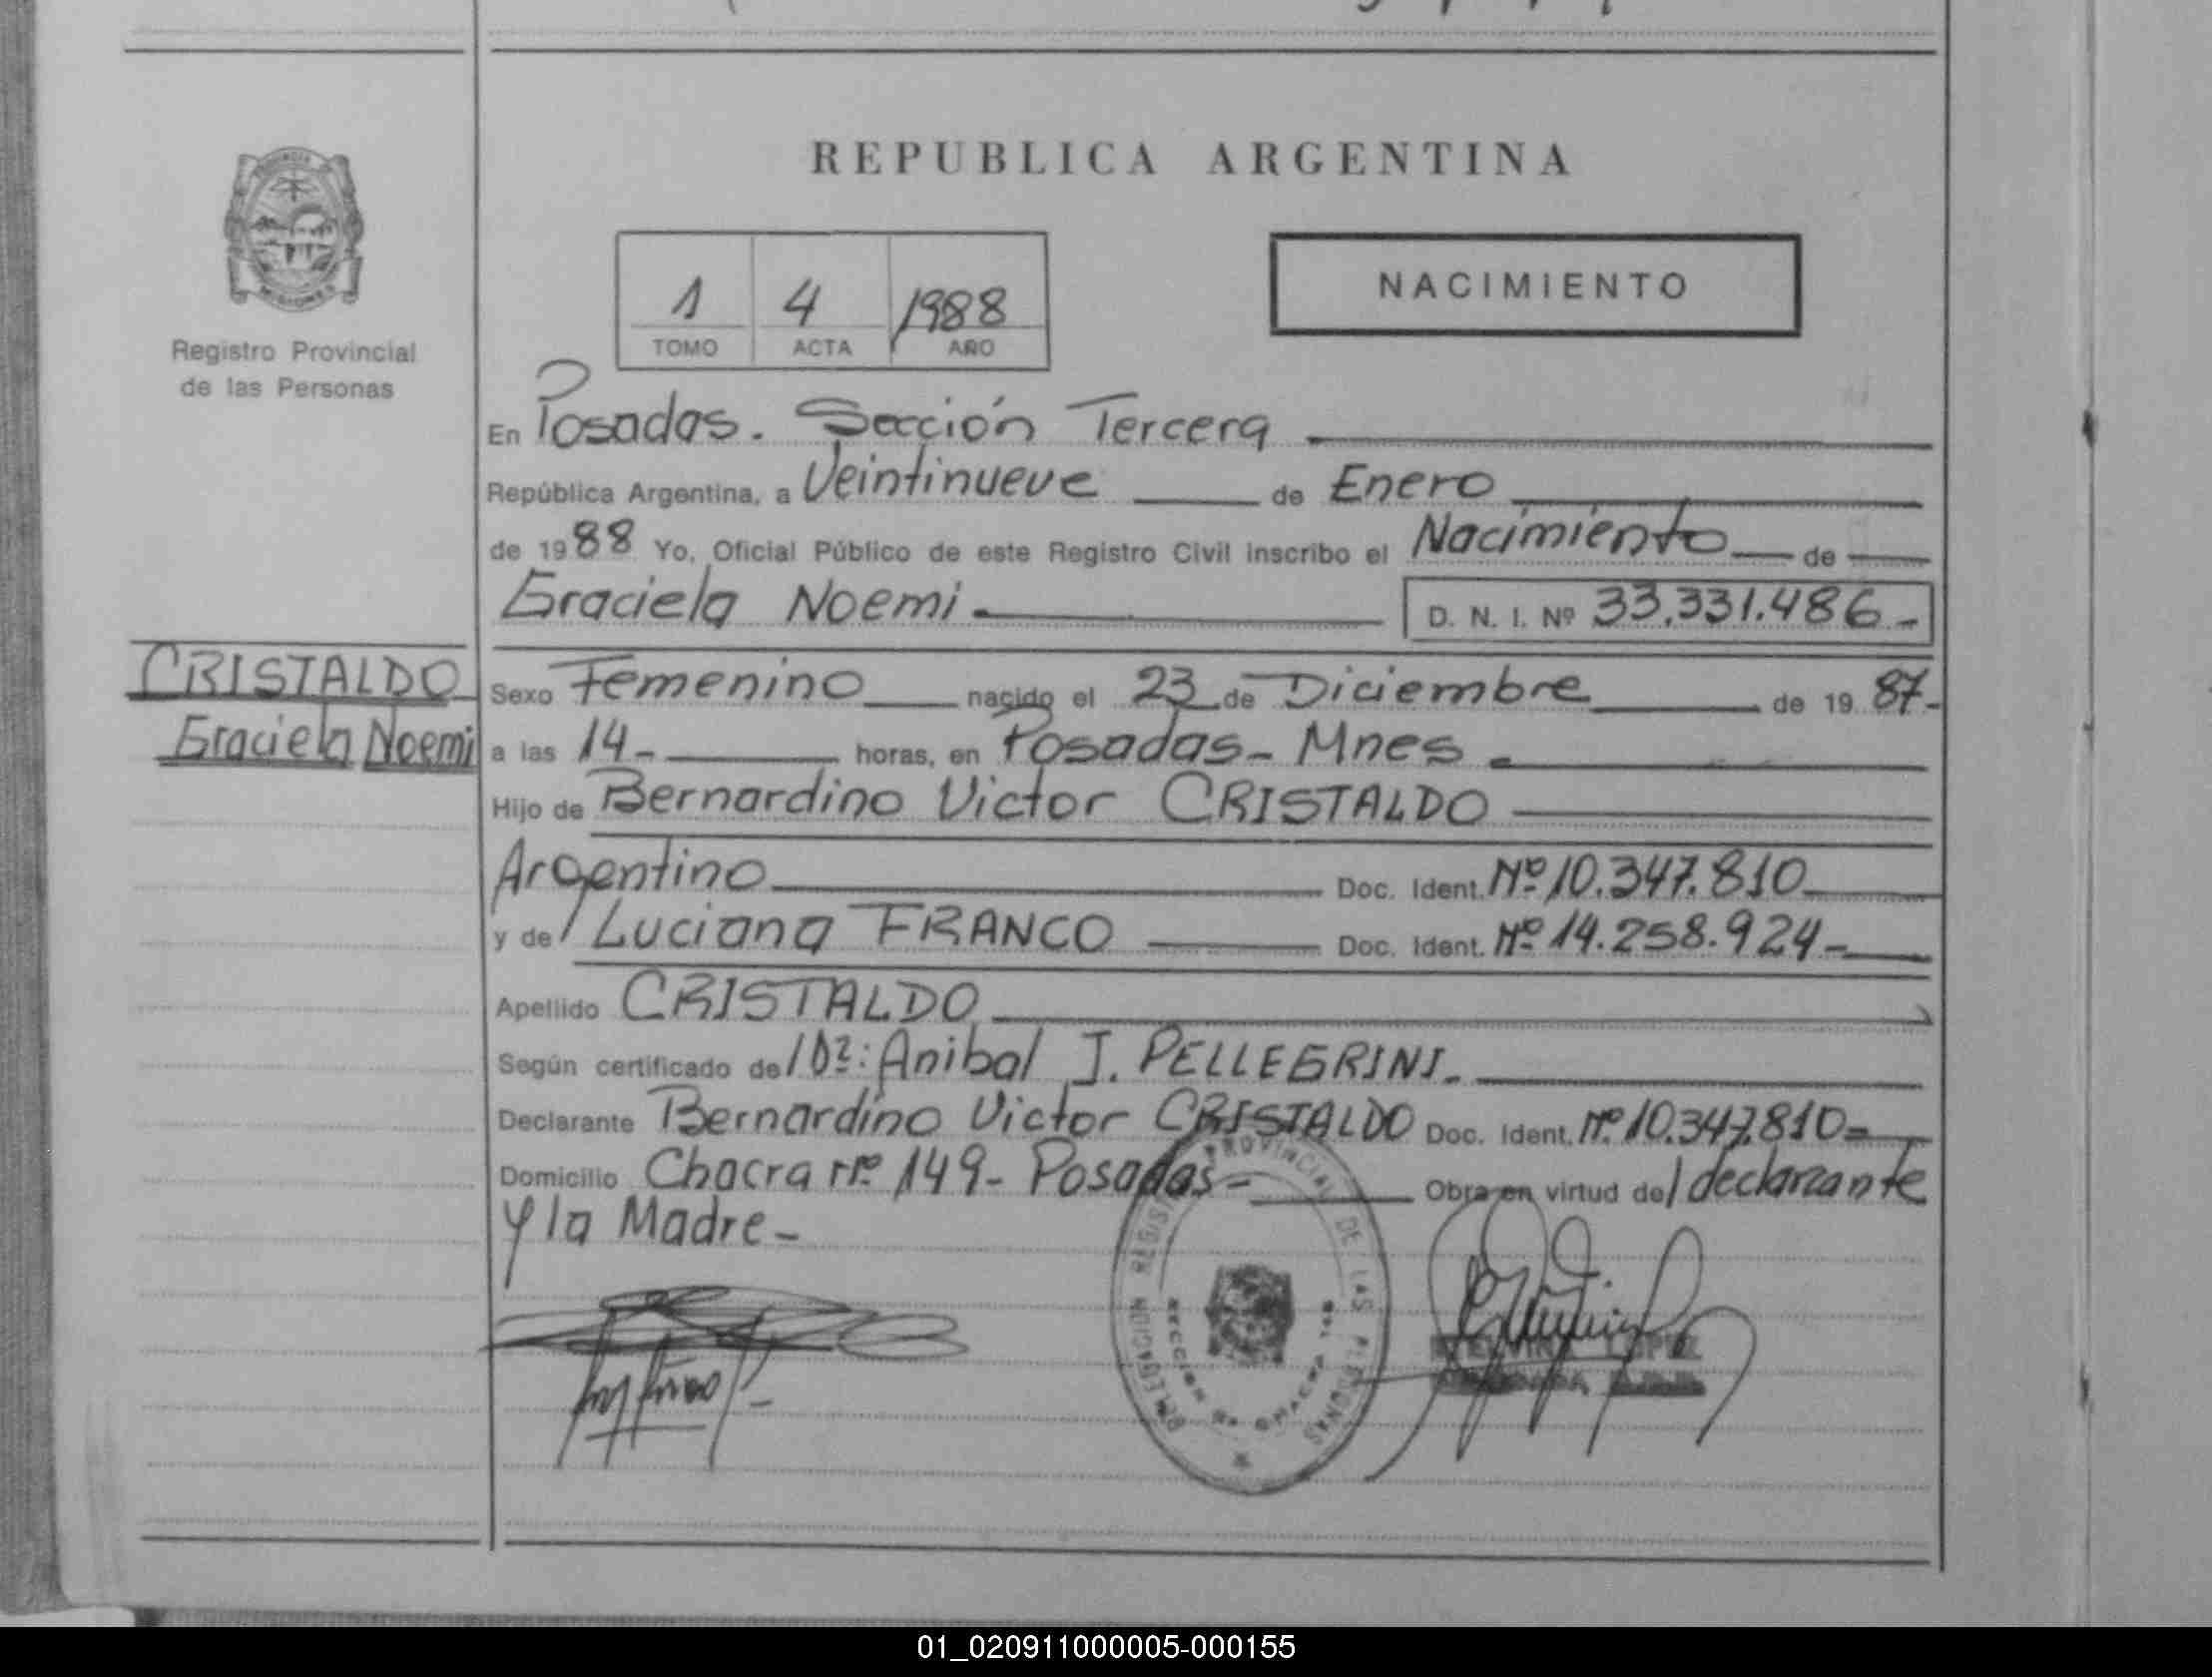 REPUBLICA ARGENTINA
MISIONES
Registro Provincial
de las Personas
1 4 1988
TOMO ACTA AÑO
NACIMIENTO
En Posadas. Sección Tercera
República Argentina, a Veintinueve de Enero
de 1988 Yo, Oficial Público de este Registro Civil inscribo el Nacimiento de
Graciela Noemi D. N. I. Nº 33.331.486-
CRISTALDO
Graciela Noemi
Sexo Femenino nacido el 23 de Diciembre de 1987-
a las 14- horas, en Posadas- Mnes
Hijo de Bernardino Victor CRISTALDO
Argentino Doc. Ident. Nº 10.347.810
y de Luciana FRANCO Doc. Ident. Nº 14.258.924-
Apellido CRISTALDO
Según certificado del Dr: Anibal J. PELLEGRINI.
Declarante Bernardino Victor CRISTALDO Doc. Ident. Nº 10.347.810=
Domicilio Chacra nº 149- Posadas- Obra en virtud del declarante
y la Madre-
DELEGACION REGISTRO PROVINCIAL DE LAS PERSONAS
SECCION 3a CHACRA 149
LOPEZ
01_020911000005-000155